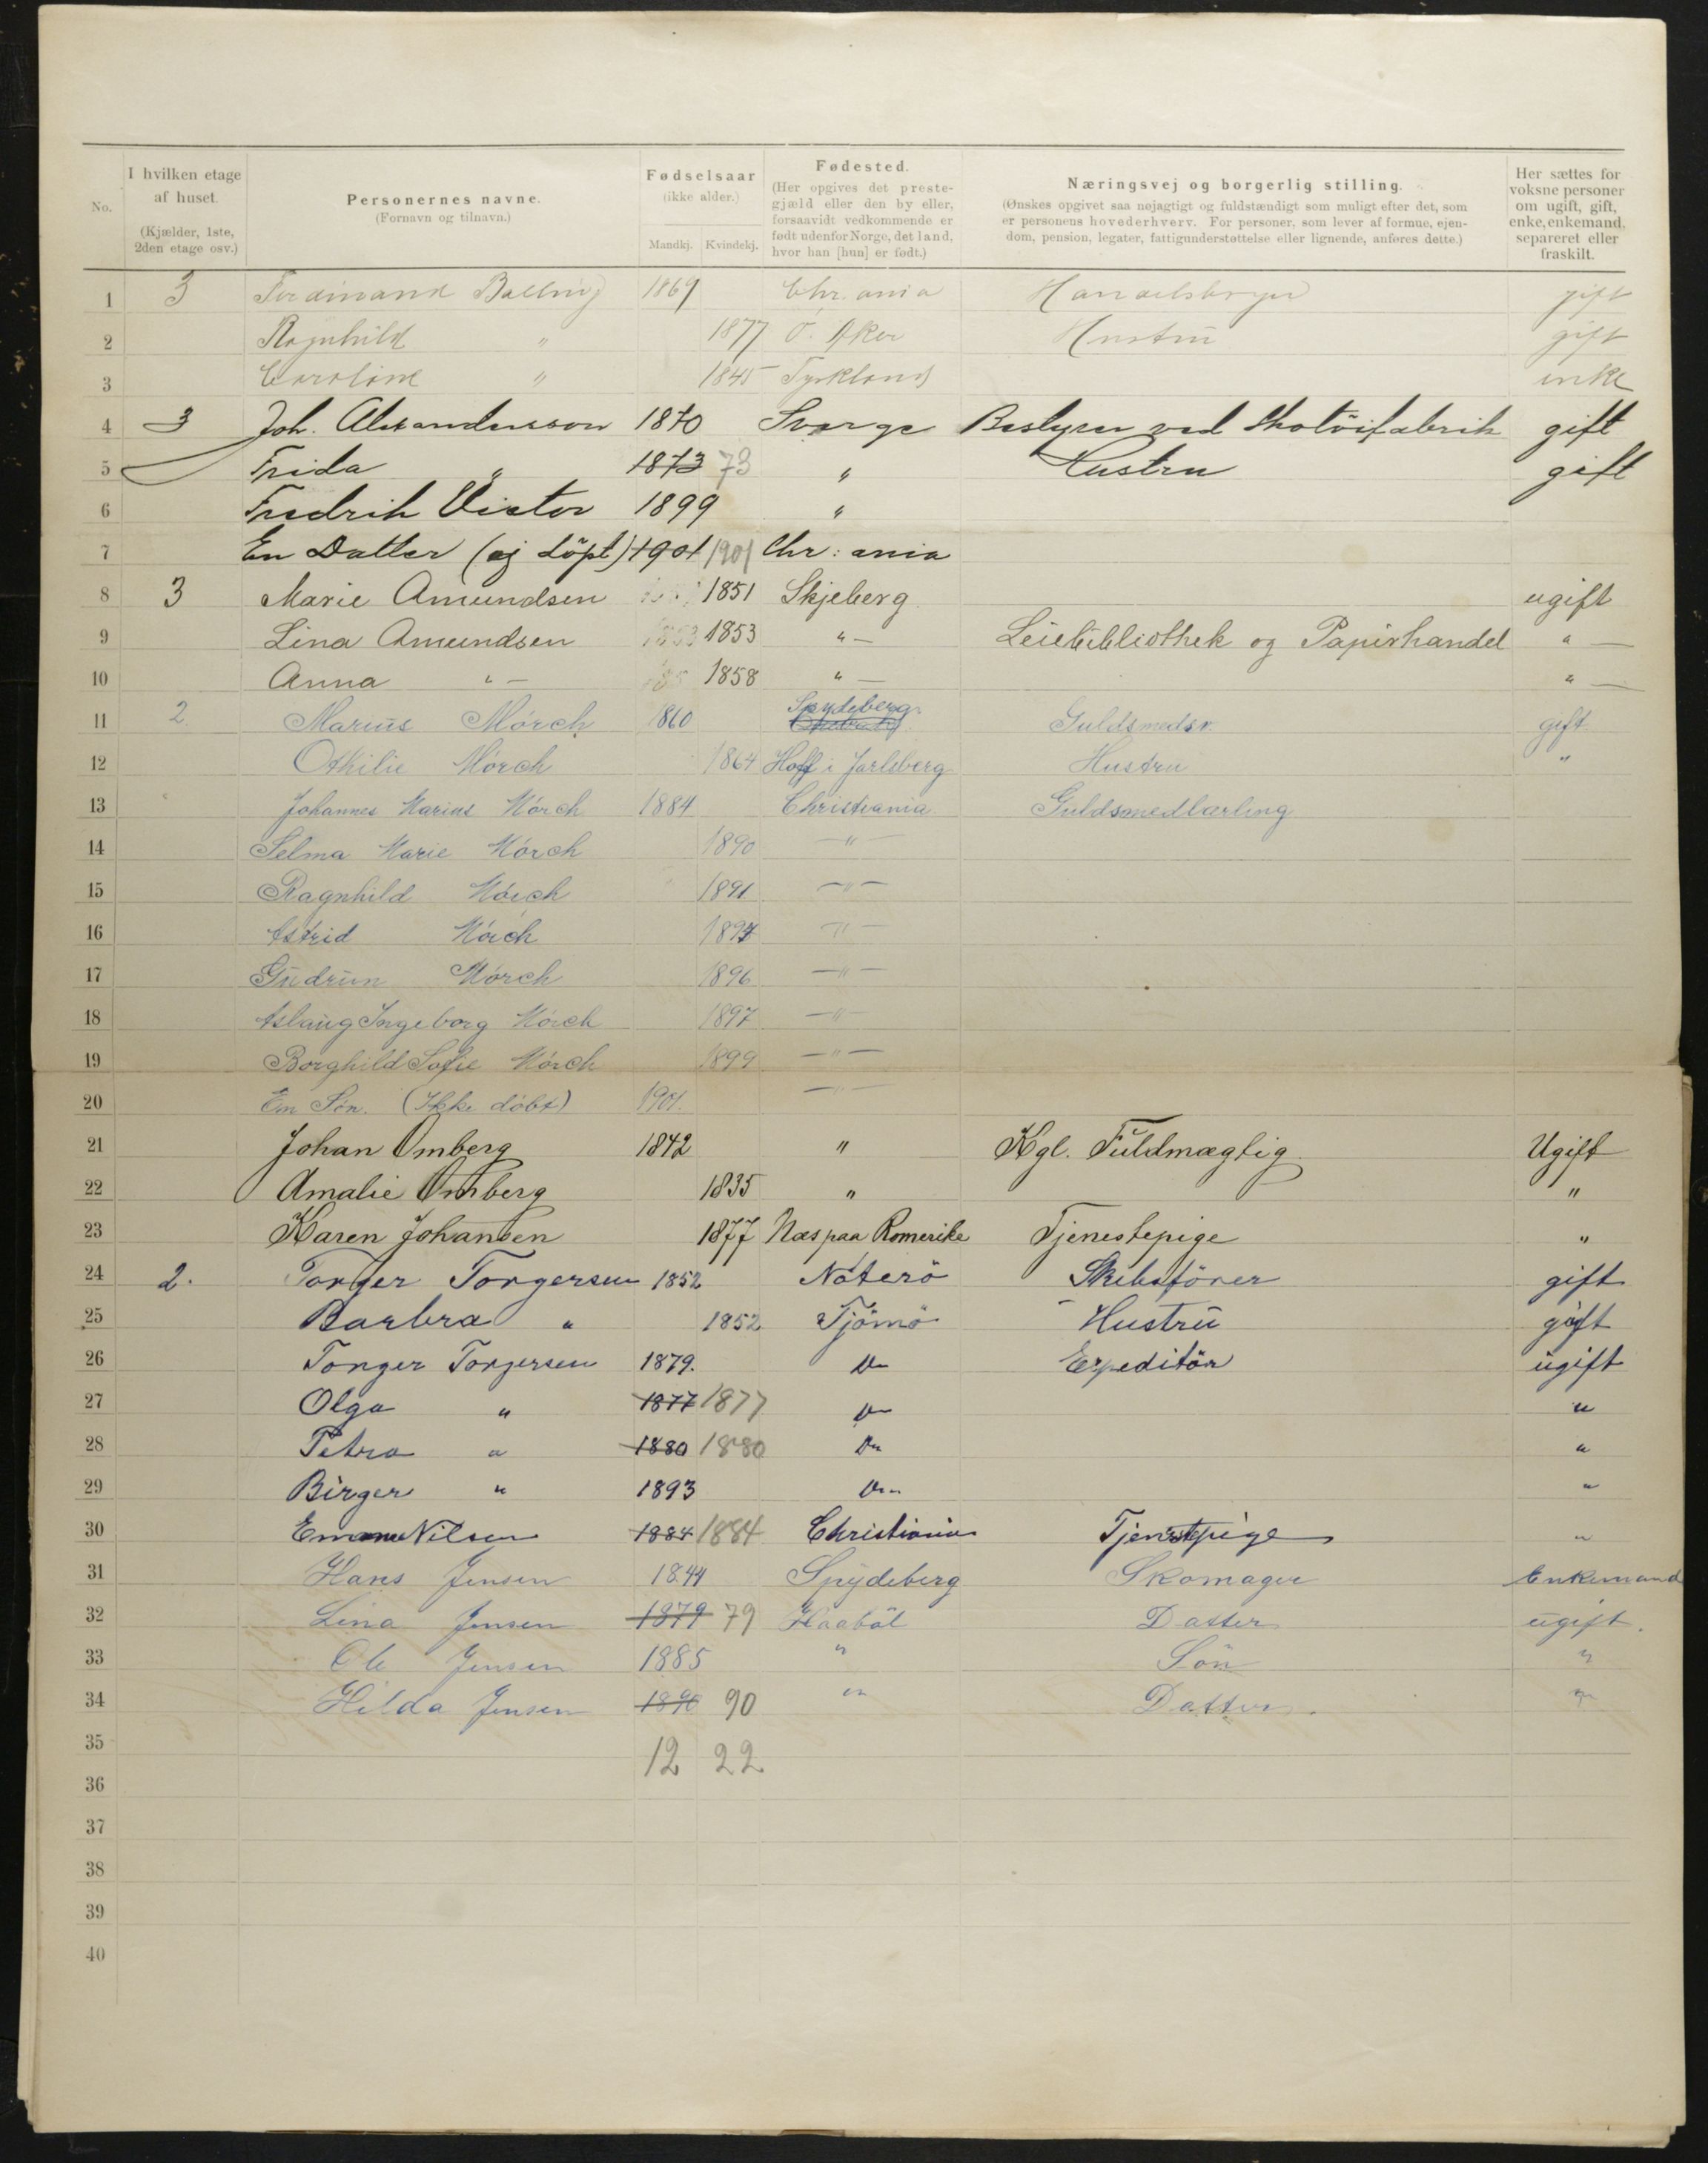 No. | I hvilken etage af huset. (Kjælder, 1ste, 2den etage osv.) | Personernes navne. (Fornavn og tilnavn.) | Fødselsaar (ikke alder.) Mandkj. Kvindekj. | Fødested. (Her opgives det prestegjæld eller den by eller, forsaavidt vedkommende er født udenfor Norge, det land, hvor han [hun] er født.) | Næringsvej og borgerlig stilling. (Ønskes opgivet saa nøjagtigt og fuldstændigt som muligt efter det, som er personens hovederhverv. For personer, som lever af formue, ejendom, pension, legater, fattigunderstøttelse eller lignende, anføres dette.) | Her sættes for voksne personer om ugift, gift, enke, enkemand, separeret eller fraskilt.
1 3 Ferdinand Balling 1869 Chr.ania gift
2 Ragnhild " 1877 Ö. Aker Hustrü gift
3 Caroline " 1845 Tyskland enke
4 3 Joh. Alexandersson 1870 Sverge Bestyrer ved Skotöifabrik gift
5 Frida " 1873 73 " Hustru gift
6 Fredrik Victor 1899 "
7 En Datter (ej döpt) 1901 1901 Chr:ania
8 3 Marie Amundsen 1851 Skjeberg ugift
9 Lina Amundsen 1853 1853 "— Leiebibliothek og Papirhandel "—
10 Anna "— 1858 "— "—
11 2 Marius Mórch 1860 Spydeberg Guldsmedsv. gift
12 Othilie Mórch 1864 Hoff i Jarlsberg Hustru "
13 Johannes Marius Mórch 1884 Christiania Guldsmedlærling
14 Selma Marie Mórch 1890 —"
15 Ragnhild Mórch 1891 —"—
16 Astrid Mórch —"—
17 Güdrün Mórch 1896 —"—
18 Aslaug Ingeborg Mórch 1897 —"—
19 Borghild Sofie Mórch 1899 —"—
20 Em Sön. (Ikke döbt) 1901. —"—
21 Johan Omberg 1842 " Kgl. Fuldmægtig Ugift
22 Amalie Omberg 1835 " "
23 Karen Johansen 1877 Næs paa Romerike Tjenestepige "
24 2. Torger Torgersen 1852 Nóterö Skibsförer gift
25 Barbra " 1852 Tjömö Hustrü gift
26 Torger Torgersen 1879. Do Expeditör ügift
27 Olga " 1877 1877 Do "
28 Petra " 1880 1880 Do "
29 Birger " 1893 Do "
30 Nilsen 1884 1884 Christiania Tjenstepige "
31 Hans Jensen 1844 Spydeberg Skomager Enkemand
32 Lina Jensen 1879 79 Haaböl Datter ugift.
33 Ole Jensen 1885 " Sön "
34 Hilda Jensen 1890 90 " Datter "
35 12 22
36
37
38
39
40